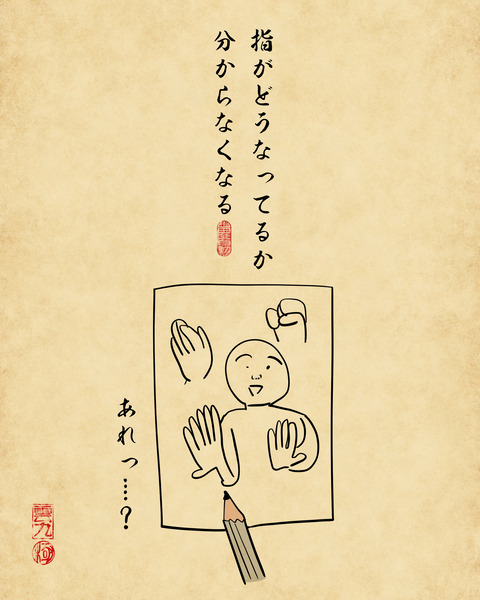 指がどうなってるか
分からなくなる
あれっ……?